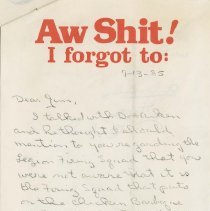 Aw Shit!
I forgot to:
9-13-85
Dear Jim,
I talked with
and he thought I should
mention to you regarding the
Legion Firing Squad that you
were not aware that it is
the Firing Squad that puts
on the Chicken Barbeque